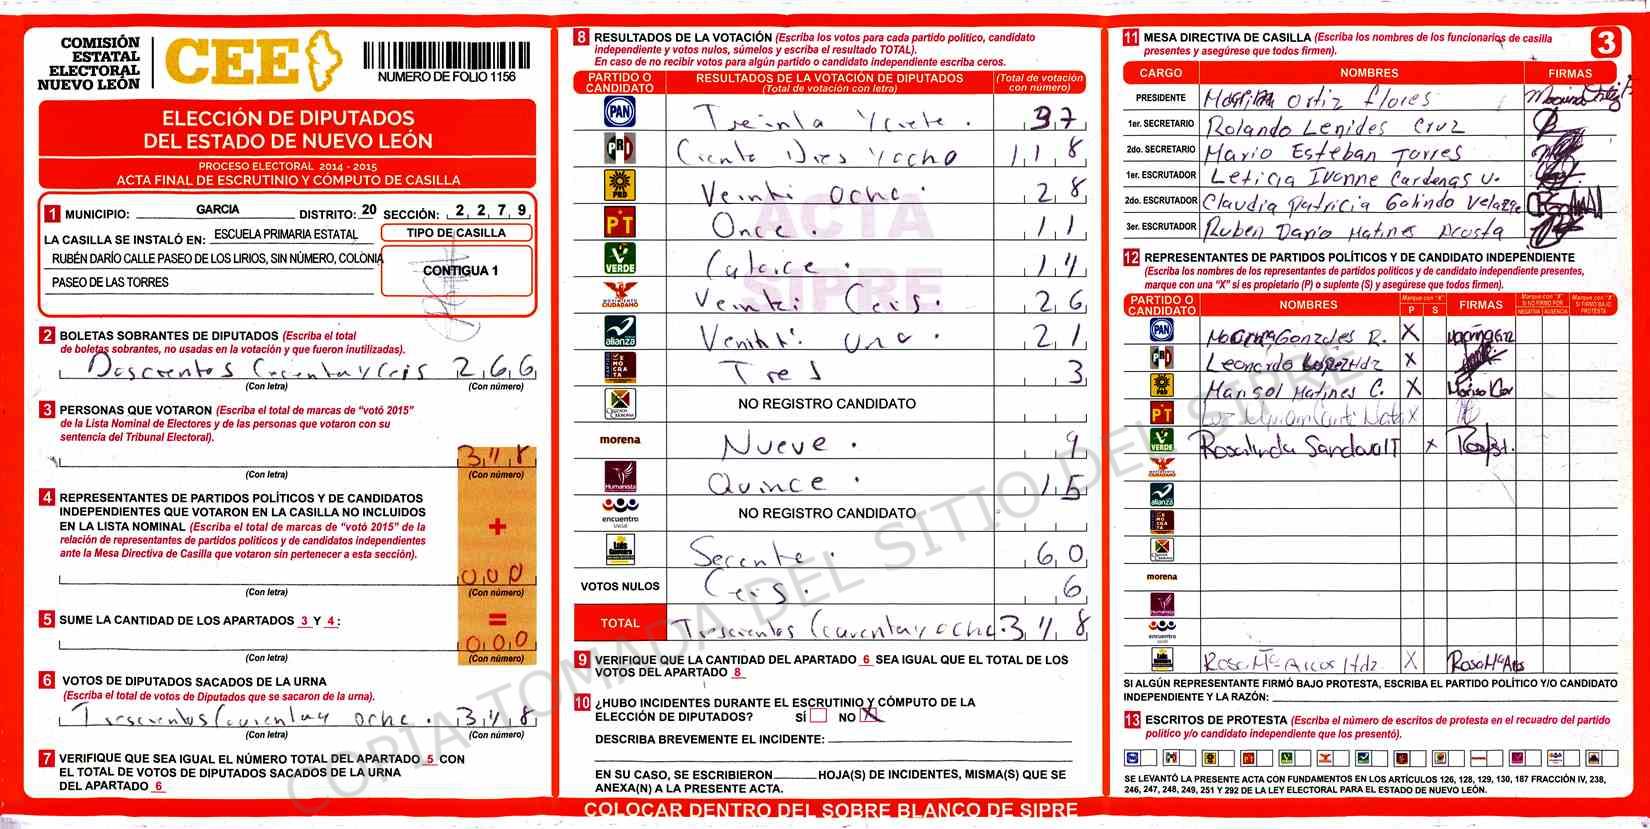 COMISIÓN
ESTATAL
ELECTORAL
NUEVO LEÓN
CEE
NUMERO DE FOLIO 1156
ELECCIÓN DE DIPUTADOS
DEL ESTADO DE NUEVO LEÓN
PROCESO ELECTORAL 2014 - 2015
ACTA FINAL DE ESCRUTINIO Y CÓMPUTO DE CASILLA
1 MUNICIPIO: GARCIA DISTRITO: 20 SECCIÓN: 2 2 7 9
LA CASILLA SE INSTALÓ EN: ESCUELA PRIMARIA ESTATAL
RUBÉN DARÍO CALLE PASEO DE LOS LIRIOS, SIN NÚMERO, COLONIA
PASEO DE LAS TORRES
TIPO DE CASILLA
CONTIGUA 1
2 BOLETAS SOBRANTES DE DIPUTADOS (Escriba el total
de boletas sobrantes, no usadas en la votación y que fueron inutilizadas).
2 6 6
(Con letra) (Con número)
3 PERSONAS QUE VOTARON (Escriba el total de marcas de “votó 2015”
de la Lista Nominal de Electores y de las personas que votaron con su
sentencia del Tribunal Electoral).
8
(Con letra) (Con número)
4 REPRESENTANTES DE PARTIDOS POLÍTICOS Y DE CANDIDATOS
INDEPENDIENTES QUE VOTARON EN LA CASILLA NO INCLUIDOS
EN LA LISTA NOMINAL (Escriba el total de marcas de “votó 2015” de la
relación de representantes de partidos políticos y de candidatos independientes
ante la Mesa Directiva de Casilla que votaron sin pertenecer a esta sección).
+
0 0 0
(Con letra) (Con número)
5 SUME LA CANTIDAD DE LOS APARTADOS 3 Y 4: =
0 0 0
(Con letra) (Con número)
6 VOTOS DE DIPUTADOS SACADOS DE LA URNA
(Escriba el total de votos de Diputados que se sacaron de la urna).
(Con letra) (Con número)
7 VERIFIQUE QUE SEA IGUAL EL NÚMERO TOTAL DEL APARTADO 5 CON
EL TOTAL DE VOTOS DE DIPUTADOS SACADOS DE LA URNA
DEL APARTADO 6
8 RESULTADOS DE LA VOTACIÓN (Escriba los votos para cada partido político, candidato
independiente y votos nulos, súmelos y escriba el resultado TOTAL).
En caso de no recibir votos para algún partido o candidato independiente escriba ceros.
PARTIDO O CANDIDATO RESULTADOS DE LA VOTACIÓN DE DIPUTADOS (Total de votación con letra) (Total de votación con número)
PAN Treinta 37
PRD 1 1 8
PRD 2 8
PT Once. 1 1
VERDE 1 4
MOVIMIENTO CIUDADANO 2 6
alianza 2 1
Tres 3
NO REGISTRO CANDIDATO
morena Nueve. 9
Humanista Quince. 1 5
encuentro social NO REGISTRO CANDIDATO
6 0
VOTOS NULOS 6
TOTAL
9 VERIFIQUE QUE LA CANTIDAD DEL APARTADO 6 SEA IGUAL QUE EL TOTAL DE LOS
VOTOS DEL APARTADO 8
10 ¿HUBO INCIDENTES DURANTE EL ESCRUTINIO Y CÓMPUTO DE LA
ELECCIÓN DE DIPUTADOS? SÍ NO X
DESCRIBA BREVEMENTE EL INCIDENTE:
EN SU CASO, SE ESCRIBIERON HOJA(S) DE INCIDENTES, MISMA(S) QUE SE
ANEXA(N) A LA PRESENTE ACTA.
COLOCAR DENTRO DEL SOBRE BLANCO DE SIPRE
ACTA
SIPRE
COPIA TOMADA DEL SITIO DEL SIPRE
3
11 MESA DIRECTIVA DE CASILLA (Escriba los nombres de los funcionarios de casilla
presentes y asegúrese que todos firmen).
CARGO NOMBRES FIRMAS
PRESIDENTE Ortiz flores
1er. SECRETARIO Rolando Lenides Cruz
2do. SECRETARIO Mario Esteban Torres
1er. ESCRUTADOR Leticia Ivonne Cardenas V.
2do. ESCRUTADOR Claudia Patricia Galindo
3er. ESCRUTADOR Ruben Dario Matines Acosta
12 REPRESENTANTES DE PARTIDOS POLÍTICOS Y DE CANDIDATO INDEPENDIENTE
(Escriba los nombres de los representantes de partidos políticos y de candidato independiente presentes,
marque con una “X” si es propietario (P) o suplente (S) y asegúrese que todos firmen).
PARTIDO O CANDIDATO NOMBRES Marque con “X” P S FIRMAS Marque con “X” SI NO FIRMÓ POR NEGATIVA AUSENCIA Marque con “X” SI FIRMÓ BAJO PROTESTA
PAN Gonzales R. X
PRD Leonardo X
PRD Matines C. X
PT X
VERDE Rosalinda Sandoval T X
MOVIMIENTO CIUDADANO
alianza
morena
encuentro
Rosa Mª Arcos Hdz. X Rosa Mª
SI ALGÚN REPRESENTANTE FIRMÓ BAJO PROTESTA, ESCRIBA EL PARTIDO POLÍTICO Y/O CANDIDATO
INDEPENDIENTE Y LA RAZÓN:
13 ESCRITOS DE PROTESTA (Escriba el número de escritos de protesta en el recuadro del partido
político y/o candidato independiente que los presentó).
SE LEVANTÓ LA PRESENTE ACTA CON FUNDAMENTOS EN LOS ARTÍCULOS 126, 128, 129, 130, 187 FRACCIÓN IV, 238,
246, 247, 248, 249, 251 Y 292 DE LA LEY ELECTORAL PARA EL ESTADO DE NUEVO LEÓN.